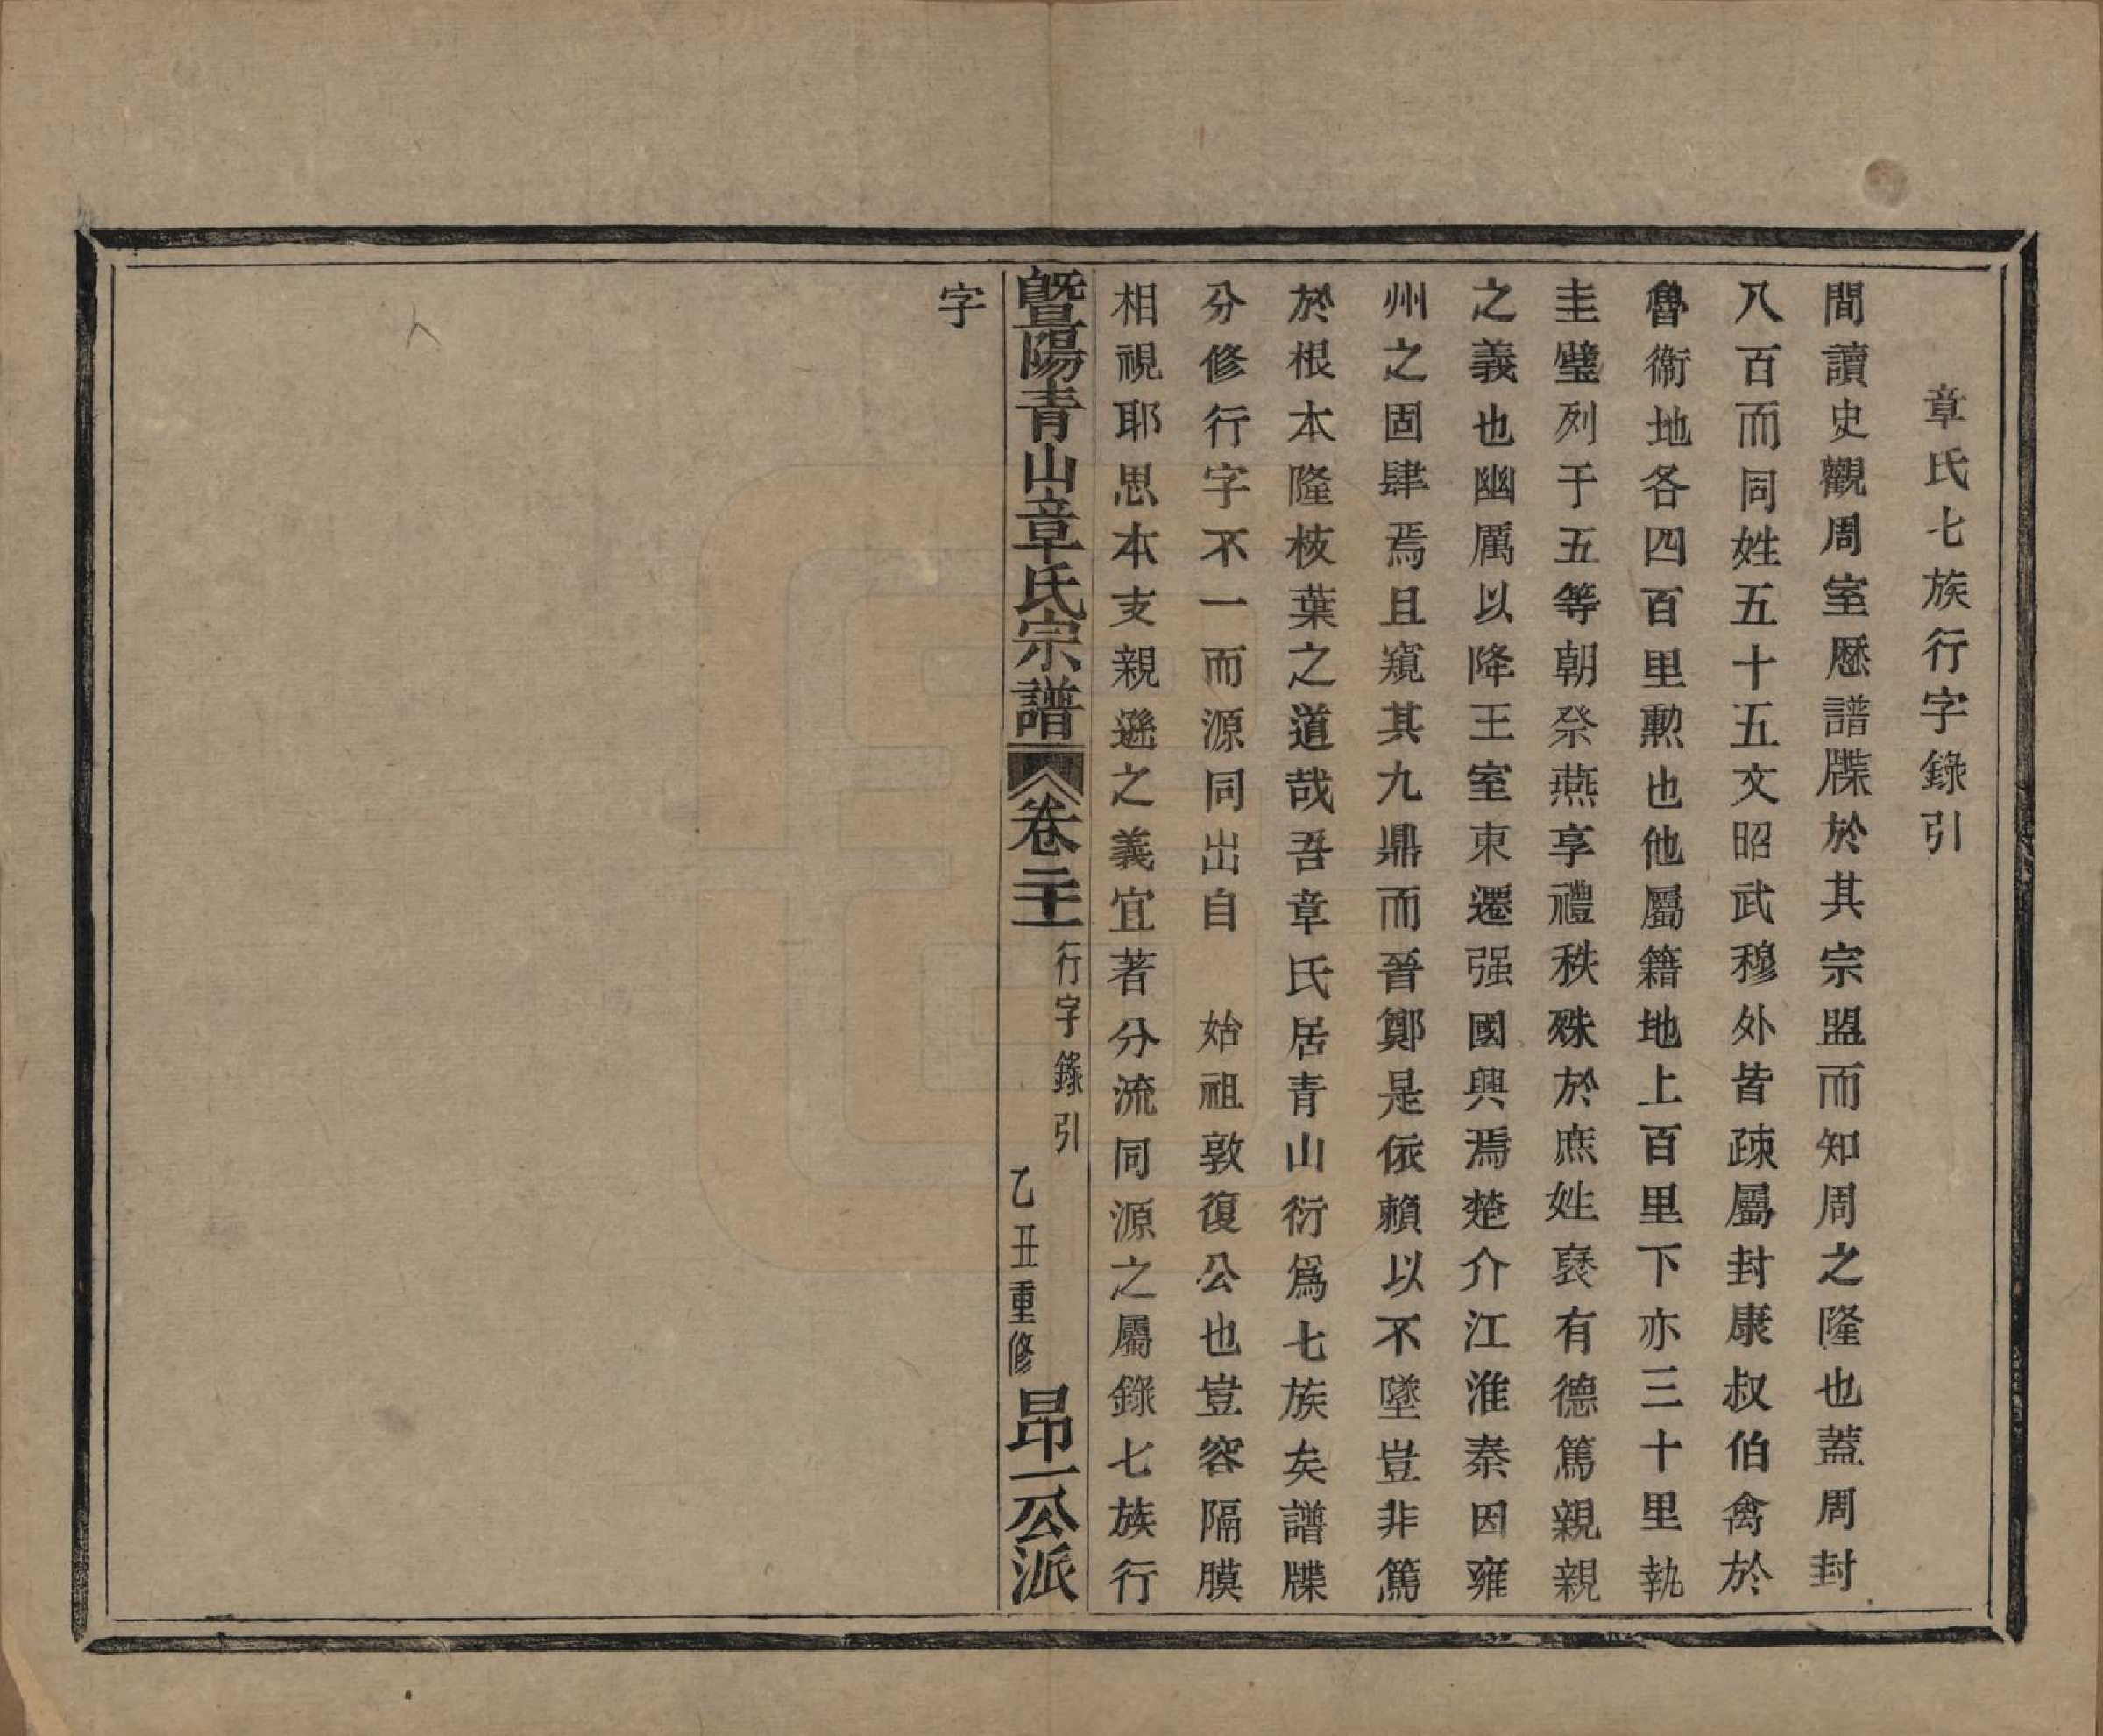 章氏七族行字錄引
間讀史觀周室歷譜牒於其宗盟而知周之隆也蓋周封
八百而同姓五十五文昭武穆外皆疎屬封康叔伯禽於
魯衞地各四百里勲也他屬籍地上百里下亦三十里執
圭璧列于五等朝祭燕享禮秩殊於庶姓裦有德篤親親
之義也幽厲以降王室東遷强國興焉楚介江淮秦因雍
州之固肆焉且窺其九鼎而晉鄭是依賴以不墜豈非篤
於根本隆枝葉之道哉吾章氏居青山衍爲七族矣譜牒
分修行字不一而源同出自　始祖敦復公也豈容隔膜
相視耶思本支親遜之義宜著分流同源之屬錄七族行
暨陽青山章氏宗譜
卷二十一
行字錄引
乙丑重修
昂一公派
字